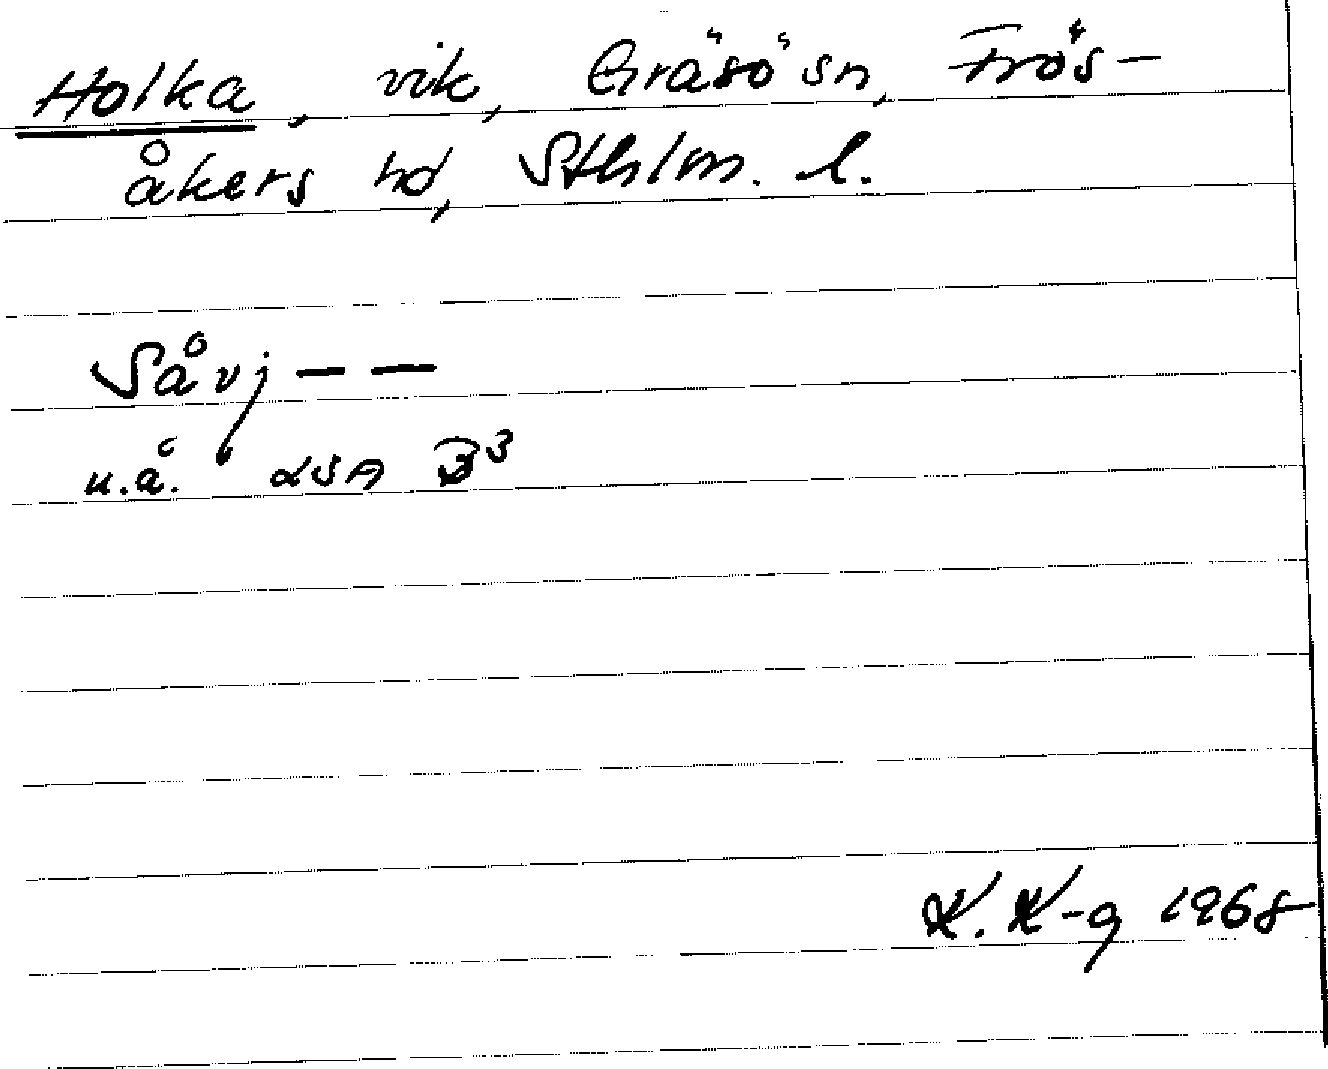 Holka, vik, Gräsö sn, Frös-
åkers hd, Sthlm. l.
Såvj — —
u.å. LSA B³
K. K-g 1968